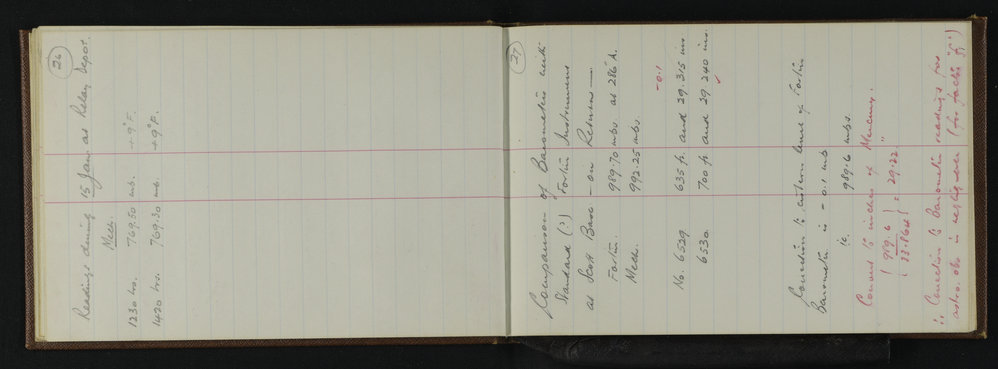 26
Readings during 15 Jan. at Relay Depot.
Mech.
1230 hrs. 769.50 mb. +9°F.
1420 hrs. 769.30 mb. +9°F.
27
Comparison of Barometers with
Standard (?) Fortin Instrument
at Scott Base – on Return —
Fortin. 989.70 mbs. at 286°A.
Mech. 992.25 mbs.
-0.1
No. 6529 635 ft. and 29.315 ins.
6530. 700 ft. and 29.240 ins.
Correction to bottom level of Fortin
Barometer is – 0.1 mb
ie. 989.6 mbs.
Convert to inches of Mercury.
(989.6 / 33.864) = 29.22 "
∴ Correction to Barometer readings for
astro. obs is negligible (for factor "f")